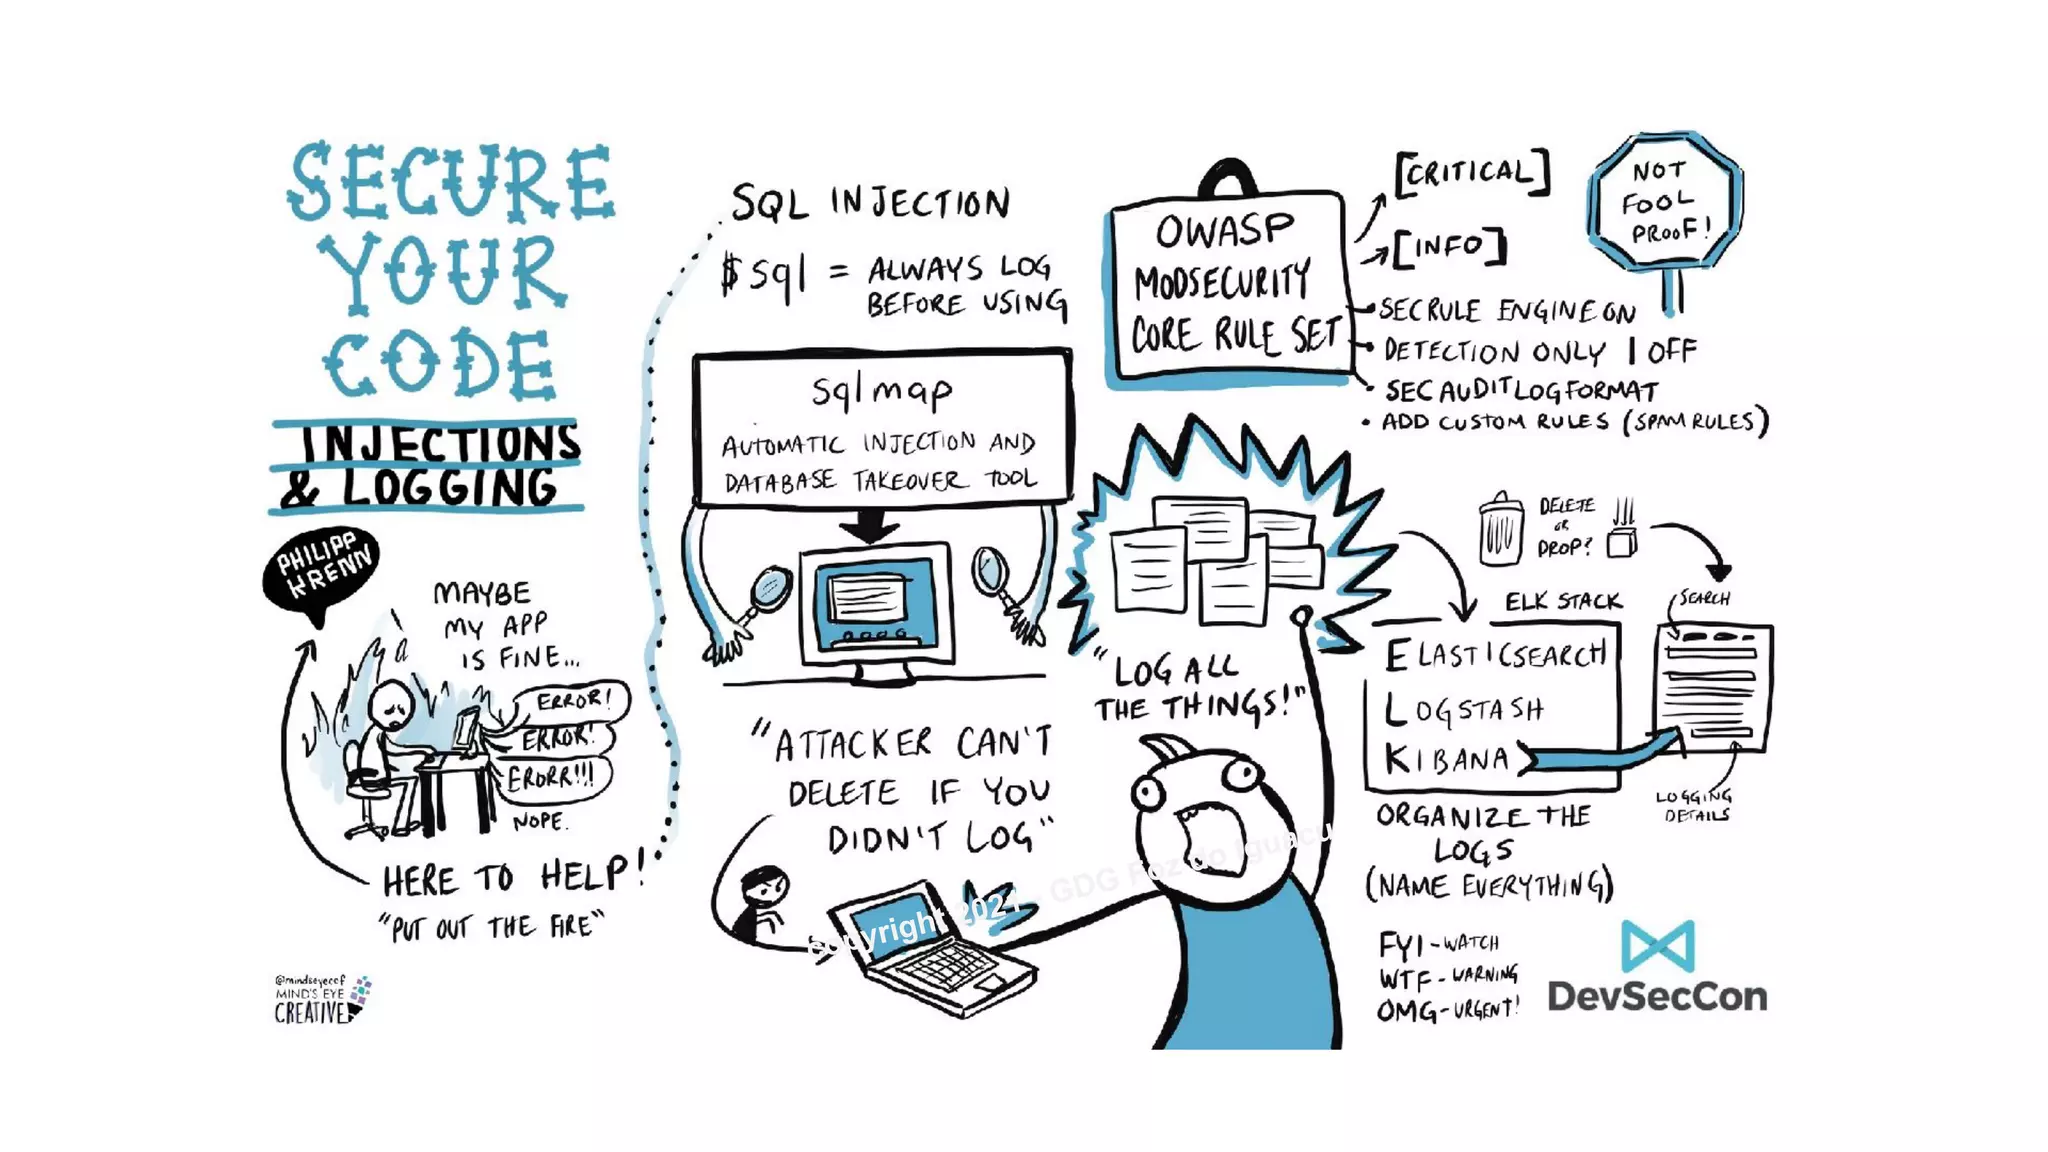 SECURE
YOUR
CODE
INJECTIONS
& LOGGING
PHILIPP
KRENN
MAYBE
MY APP
IS FINE...
ERROR!
ERROR!
ERORR!!!
NOPE.
HERE TO HELP!
"PUT OUT THE FIRE"
@mindseyeccf
MIND'S EYE
CREATIVE
SQL INJECTION
$sql = ALWAYS LOG
BEFORE USING
sqlmap
AUTOMATIC INJECTION AND
DATABASE TAKEOVER TOOL
"ATTACKER CAN'T
DELETE IF YOU
DIDN'T LOG"
OWASP
MODSECURITY
CORE RULE SET
[CRITICAL]
[INFO]
• SECRULE ENGINE ON
• DETECTION ONLY | OFF
• SECAUDITLOGFORMAT
• ADD CUSTOM RULES (SPAM RULES)
NOT
FOOL
PROOF!
"LOG ALL
THE THINGS!"
DELETE
OR
DROP?
ELK STACK
ELASTICSEARCH
LOGSTASH
KIBANA
SEARCH
LOGGING
DETAILS
ORGANIZE THE
LOGS
(NAME EVERYTHING)
FYI - WATCH
WTF - WARNING
OMG - URGENT!
DevSecCon
Copyright 2021 - GDG Foz do Iguacu